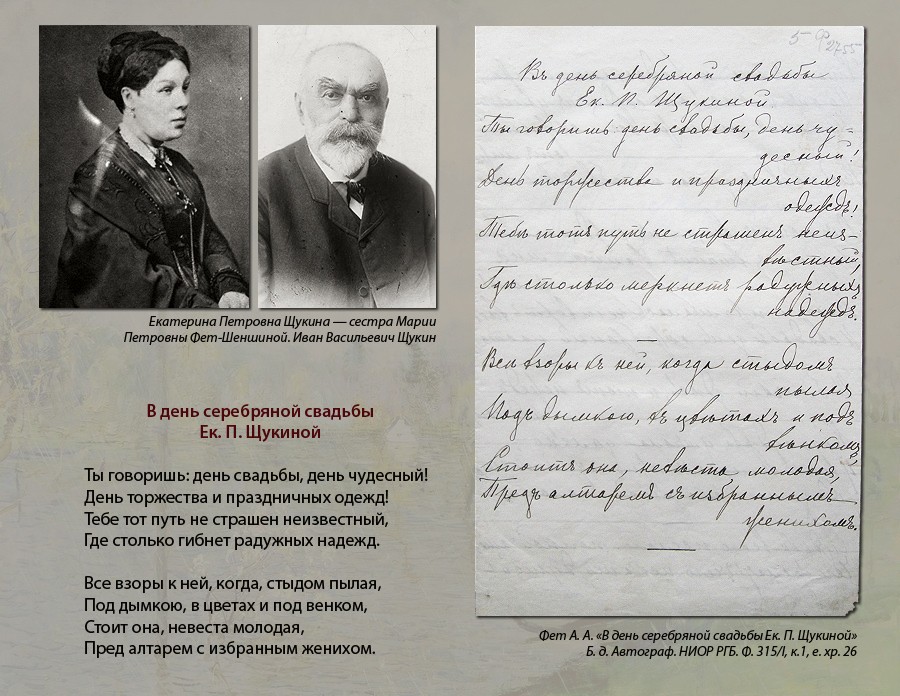 Екатерина Петровна Щукина — сестра Марии
Петровны Фет-Шеншиной. Иван Васильевич Щукин
В день серебряной свадьбы
Ек. П. Щукиной
Ты говоришь: день свадьбы, день чудесный!
День торжества и праздничных одежд!
Тебе тот путь не страшен неизвестный,
Где столько гибнет радужных надежд.
Все взоры к ней, когда, стыдом пылая,
Под дымкою, в цветах и под венком,
Стоит она, невеста молодая,
Пред алтарем с избранным женихом.
5 Ф 2755
Въ день серебряной свадьбы
Ек. П. Щукиной
Ты говоришь день свадьбы, день чу-
десный!
День торжества и праздничныхъ
одеждъ!
Тебѣ тотъ путь не страшенъ неиз-
вѣстный,
Гдѣ столько меркнетъ радужныхъ
надеждъ.
Все взоры къ ней, когда стыдомъ
пылая
Подъ дымкою, въ цвѣтахъ и подъ
вѣнкомъ,
Стоитъ она, невѣста молодая,
Предъ алтаремъ съ избраннымъ
женихомъ.
Фет А. А. «В день серебряной свадьбы Ек. П. Щукиной»
Б. д. Автограф. НИОР РГБ. Ф. 315/I, к.1, е. хр. 26